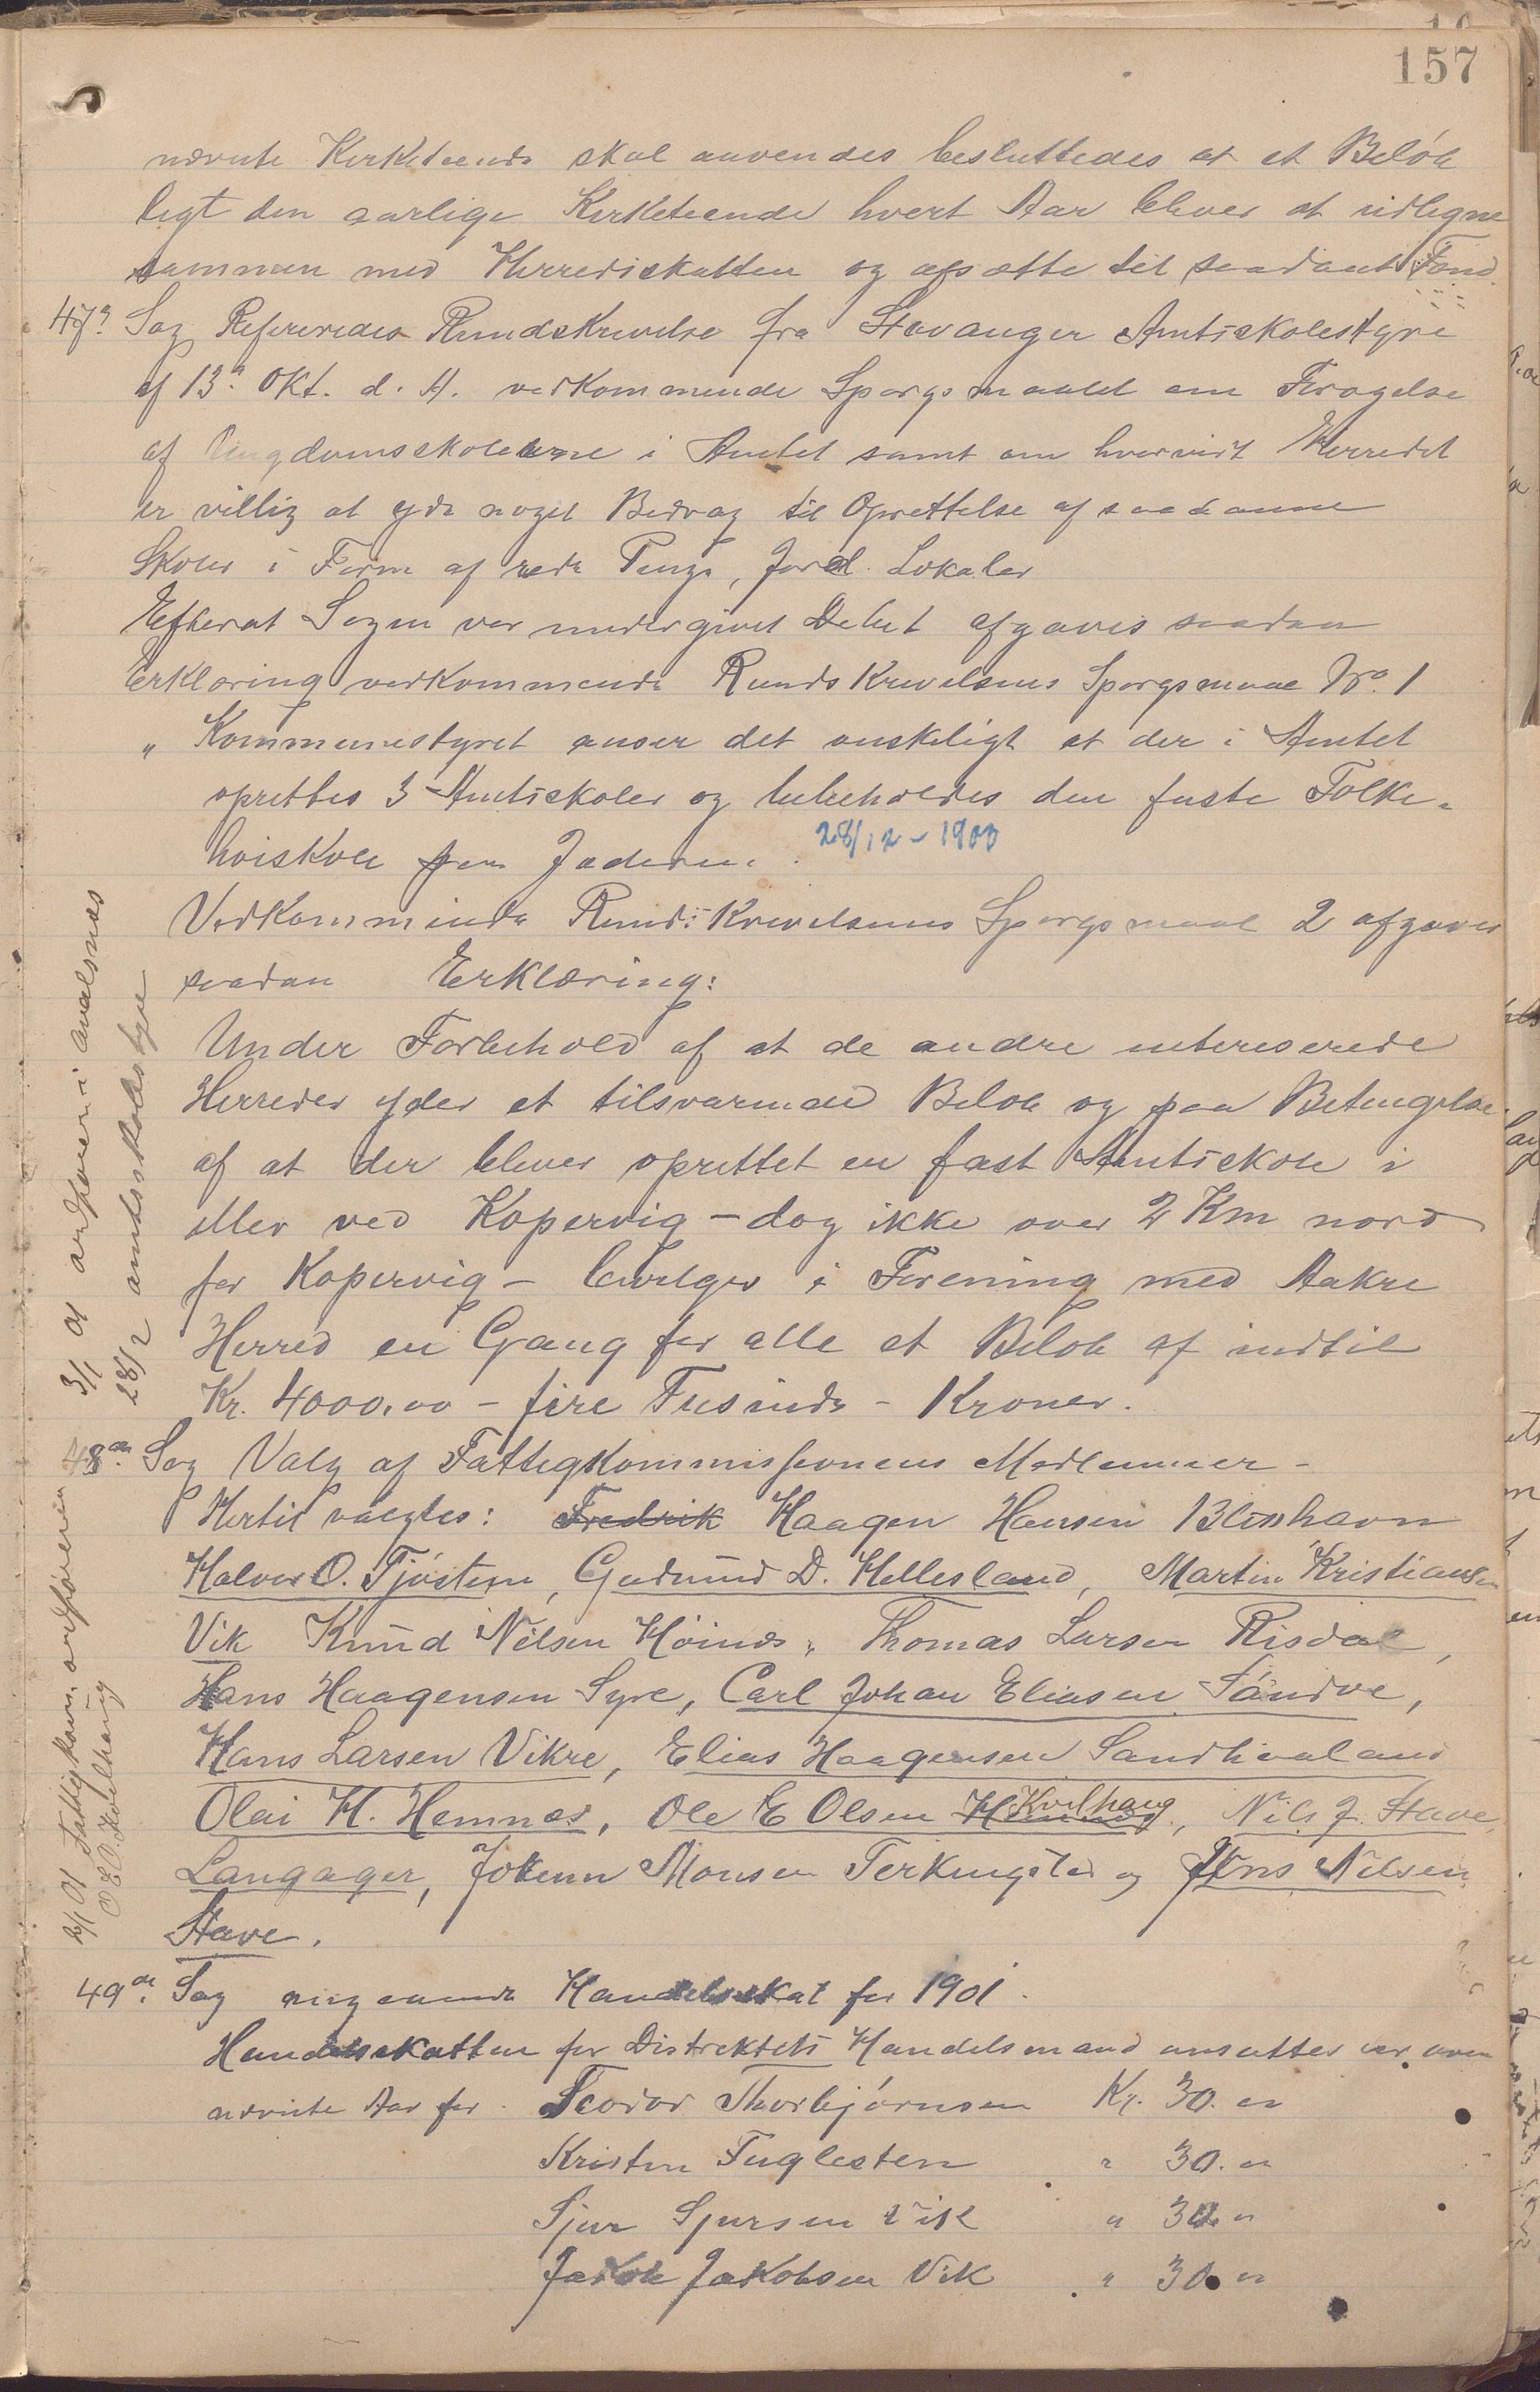 157
nævnte Kirketiende skal anvendes besluttedes at et Beløb
ligt den aarlige Kirketiende hvert Aar bliver at udligne
sammen med Herredsskatten og afsætte til saadant Fond.
47de Sag Refereredes Rundskrivelse fra Stavanger Amtsskolestyre
af 13de Okt. d. A. vedkommende Spørgsmaalet om Forøgelse
af Ungdomsskolerne i Amtet samt om hvorvidt Herredet
er villig at yde noget Bidrag til Oprettelse af saadanne
Skoler i Form af rede Penge, Jord. Lokaler
Efterat Sagen var undergivet Debat afgaves saadan
Erklæring vedkommende Rundskrivelsens Spørgsmaal No. 1
" Kommunestyret anser det ønskeligt at der i Amtet
oprettes 3 Amtsskoler og bibeholdes den faste Folke-
høiskole paa Jæderen.
28/12-1900
Vedkommende Rundskrivelsens Spørgsmaal 2 afgaves
saadan Erklæring:
Under Forbehold af at de andre interesserede
Herreder yder et tilsvarende Beløb og paa Betingelse
af at der bliver oprettet en fast Amtsskole i
eller ved Kopervig - dog ikke over 2 Km nord
for Kopervig - bevilges i Forening med Aakre
Herred en Gang for alle et Beløb af indtil
Kr. 4000,00 - fire Tusinde - Kroner.
3/1 01 ordføreren i Avaldsnæs
28/12 amtsskolestyre
48de Sag Valg af Fattigkommissionens Medlemmer -
Hertil valgtes: Fredrik Haagen Hansen Blixhavn
Halvor O. Tjøsten, Gudmund D. Hellesland, Martin Kristiansen
Vik Knud Nilsen Høines, Thomas Larsen Risdal,
Hans Haagensen Syre, Carl Johan Eliasen Sandve,
Hans Larsen Vikre, Elias Haagensen Sandhaaland
Olai H. Hemnæs, Ole E Olsen Kvilhaug, Nils J. Stave,
Langager, Johenn Monsen Terkingstad og Jens Nilsen
Stave.
2/1 01 Fattigkom. ordføreren
O E O. Kvilhaug
49de Sag angaaende Handelsskat for 1901.
Handelsskatten for Distriktets Handelsmænd ansættes for oven
nævnte Aar for Teodor Thorbjørnsen Kr. 30. "
Kristen Fuglesten " 30. "
Sjur Sjursen Vik " 30. "
Jakob Jakobsen Vik " 30. "